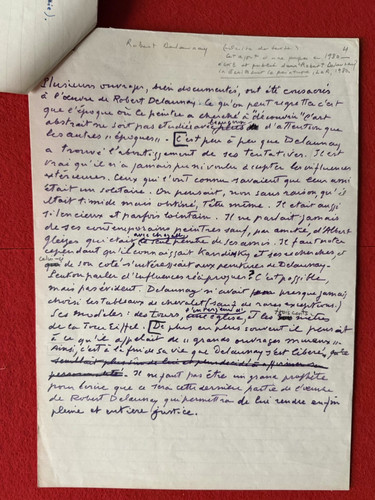 Robert Delaunay
4
Plusieurs ouvrages, bien documentés, ont été consacrés
à l'œuvre de Robert Delaunay. Ce qu'on peut regretter c'est
que l'époque où ce peintre a cherché à découvrir "l'art
abstrait ne soit pas étudiée avec d'attention que
les autres "époques". C'est peu à peu que Delaunay
a trouvé l'aboutissement de ses tentatives. Il est
vrai qu'il n'a jamais pu ni voulu accepter les influences
extérieures. Ceux qui l'ont connu savaient que Delaunay
était un solitaire. On pensait, non sans raison, qu'il
était timide mais obstiné, têtu même. Il était aussi
silencieux et parfois lointain. Il ne parlait jamais
de ses contemporains peintres sauf, par amitié, d'Albert
Gleizes qui était de ses amis. Il faut noter
cependant qu'il connaissait Kandinsky et ses recherches et
de son coté s'intéressait aux peintures de Delaunay.
Peut on parler d'influences réciproques? C'est possible,
mais pas évident. Delaunay n'avait presque jamais
choisi les tableaux de chevalet (sauf de rares exceptions)
Ses modèles: des tours, une église, et les trois cents mètres
de la Tour Eiffel. De plus en plus souvent il pensait
à ce qu'il appelait de "grands ouvrages muraux"
Ainsi, c'est à la fin de sa vie que Delaunay s'est libéré
Il ne faut pas être un grand prophète
pour croire que ce sera cette dernière partie de l'œuvre
de Robert Delaunay qui permettra de lui rendre enfin
pleine et entière justice.